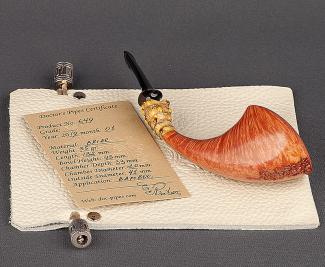 Doctor's Pipes Certificate
Product No: 649
Grade:
Year 2019 month: 01
Material: BRIAR
Weight: gr
Length: mm
Bowl Height: mm
Chamber Depth: 33 mm
Chamber Diameter: 20 mm
Outside Diameter: mm
Application: BAMBOO
Web: doc-pipes.com